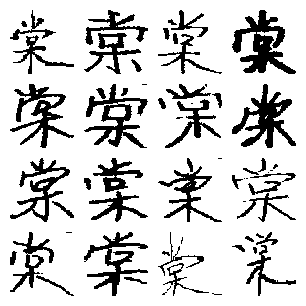 棠棠棠棠
棠棠棠棠
棠棠棠棠
棠棠棠棠